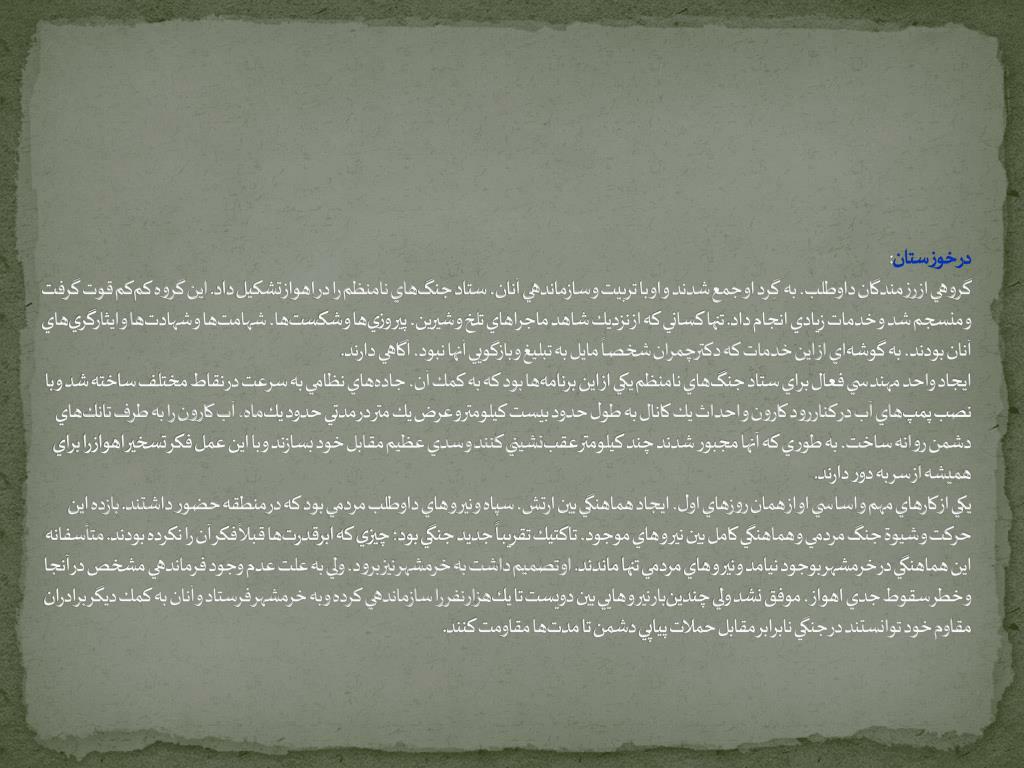 درخوزستان:
گروهي ازرزمندگان داوطلب. به گرد اوجمع شدند و اوبا تربيت وسازماندهي آنان. ستاد جنگ‌هاي نامنظم را در اهواز تشكيل داد. اين گروه كم‌كم قوت گرفت
ومنسجم شد و خدمات زيادي انجام داد. تنها كساني كه ازنزديك شاهد ماجراهاي تلخ وشيرين. پيروزي‌ها وشكست‌ها. شهامت‌ها و شهادت‌ها و ايثارگري‌هاي
آنان بودند. به گوشه‌اي ازاين خدمات كه دكترچمران شخصاً مايل به تبليغ وبازگويي آنها نبود. آگاهي دارند.
ايجاد واحد مهندسي فعال براي ستاد جنگ‌هاي نامنظم يكي ازاين برنامه‌ها بود كه به كمك آن. جاده‌هاي نظامي به سرعت درنقاط مختلف ساخته شد وبا
نصب پمپ‌هاي آب دركناررود كارون و احداث يك كانال به طول حدود بيست كيلومتروعرض يك متر درمدتي حدود يك‌ماه. آب كارون را به طرف تانك‌هاي
دشمن روانه ساخت. به طوري كه آنها مجبور شدند چند كيلومتر عقب‌نشيني كنند وسدي عظيم مقابل خود بسازند وبا اين عمل فكر تسخير اهوازرا براي
هميشه ازسربه دور دارند.
يكي ازكارهاي مهم و اساسي او ازهمان روزهاي اول. ايجاد هماهنگي بين ارتش. سپاه ونيروهاي داوطلب مردمي بود كه درمنطقه حضور داشتند. بازده اين
حركت وشيوة جنگ مردمي وهماهنگي كامل بين نيروهاي موجود. تاكتيك تقريباً جديد جنگي بود؛ چيزي كه ابرقدرت‌ها قبلاً فكر آن را نكرده بودند. متأسفانه
اين هماهنگي درخرمشهربوجود نيامد ونيروهاي مردمي تنها ماندند. اوتصميم داشت به خرمشهر نيز برود. ولي به علت عدم وجود فرماندهي مشخص در آنجا
وخطر سقوط جدي اهواز. موفق نشد ولي چندين‌بارنيروهايي بين دويست تا يك‌هزارنفررا سازماندهي كرده وبه خرمشهر فرستاد وآنان به كمك ديگر برادران
مقاوم خود توانستند درجنگي نابرابرمقابل حملات پياپي دشمن تا مدت‌ها مقاومت كنند.